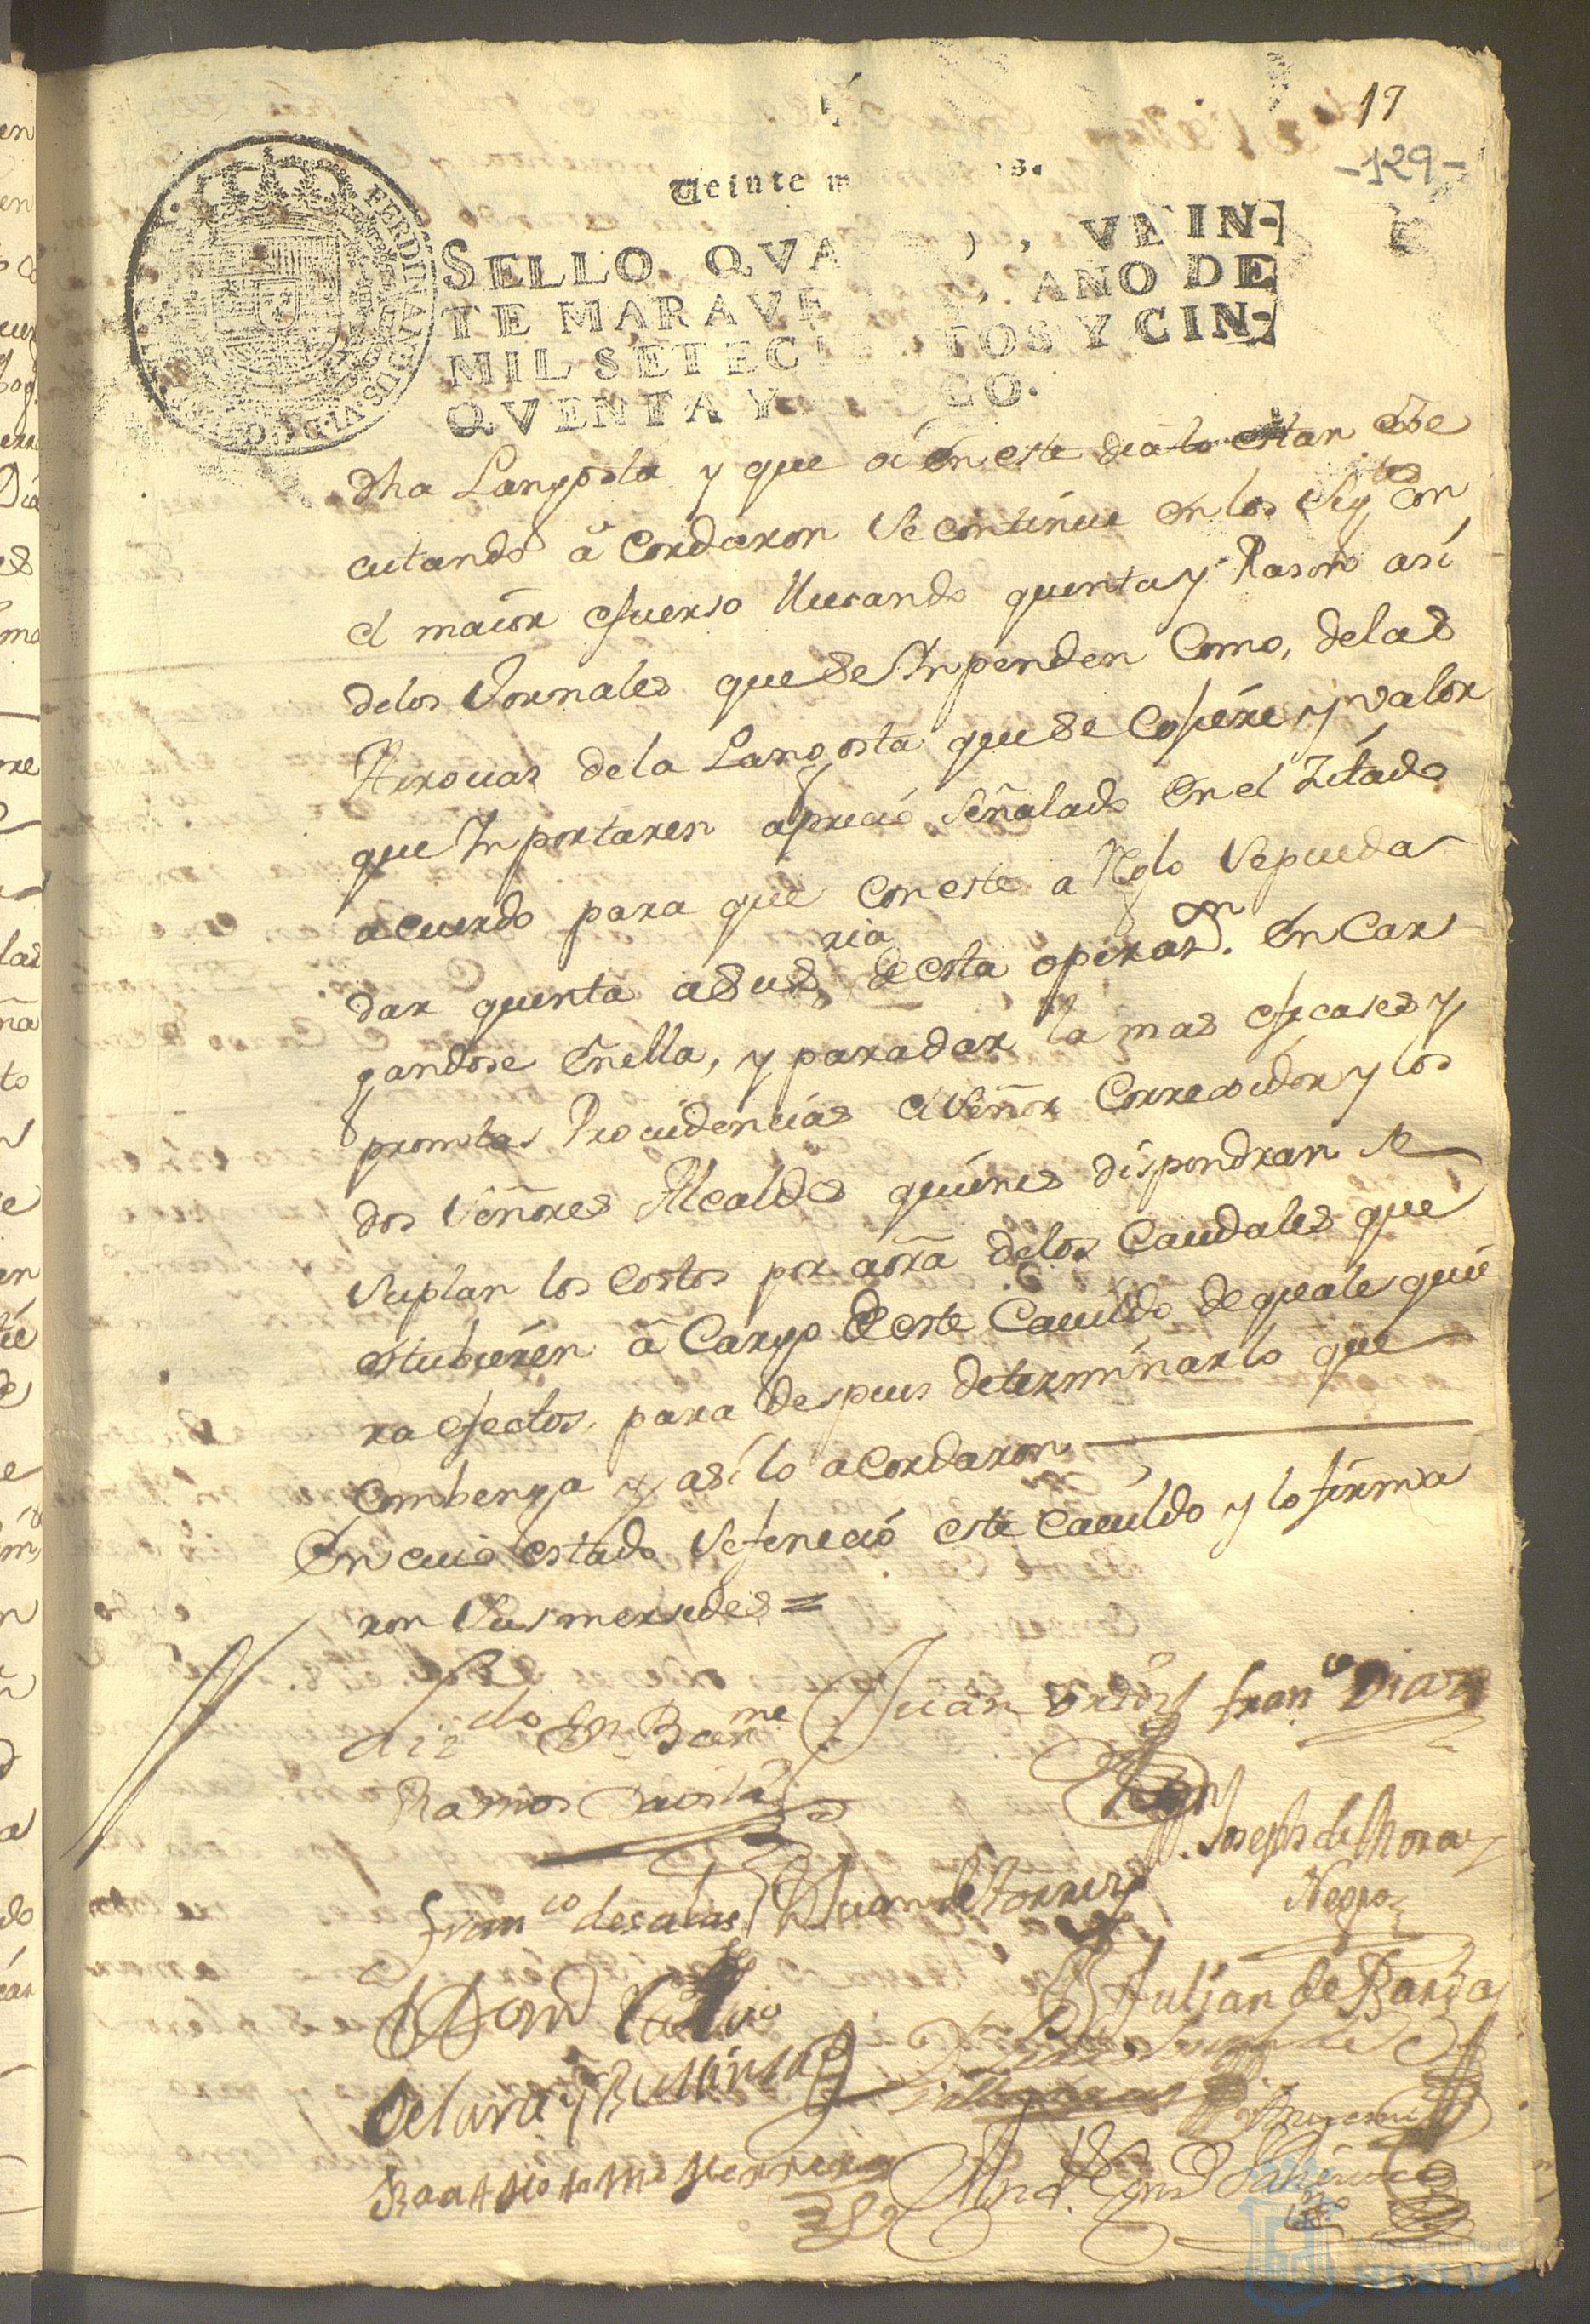 17
-129-
Veinte m s.
SELLO QVA , VEIN-
TE MARAVE , AÑO DE
MIL SETECIE TOS Y CIN-
QVENTA Y CO.
FERDINANDUS VI D G
dha Langosta y que oi en este dia lo estan exe
cutando acordaron se continue en los sigtes con
el maior esfuerso lleuando quenta y Rason así
delos Jornales que se Inpenden Como, delas
Arrouas dela Langosta que se Cojiere y valor
que Inportaren apreció señalado en el Zitado
acuerdo para que con este arreglo se pueda
dar quenta a su sria de esta operazon. en Car
gandose en ella, y para dar la mas eficases y
promtas Prouidencias el señor Corregidor y los
dos señores Alcaldes quienes dispondran se
suplan los costos por aora delos Caudales que
estubieren a Cargo de este Cauildo de quales quie
ra efectos para despues determinar lo que
combenga y así lo acordaron
En cuio estado se feneció este cauildo y lo firma
ron sus mersedes =
Juan franco Diaz
Ramos
Joseph de Mora
Negro
franco de salas Juan de torres
Julian de Barba
de Lara y
Herrera
Ayuntamiento de
HUELVA